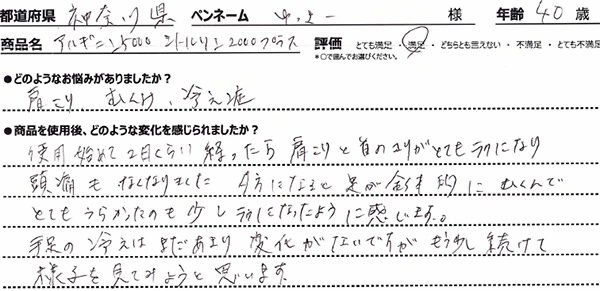 都道府県 神奈川県 ペンネーム ゆっきー 様 年齢 40 歳
商品名 アルギニン5000 シトルリン2000プラス 評価 とても満足・満足・どちらとも言えない・不満足・とても不満足
*○で囲んでお選びください。
●どのようなお悩みがありましたか?
肩こり むくみ、冷え症
●商品を使用後、どのような変化を感じられましたか?
使用始めて2日くらい経ったら肩こりと首のコリがとてもラクになり
頭痛もなくなりました 夕方になると足が全体的にむくんで
とてもつらかったのも少しラクになったように感じます。
手足の冷えはまだあまり変化がないですがもう少し続けて
様子を見てみようと思います